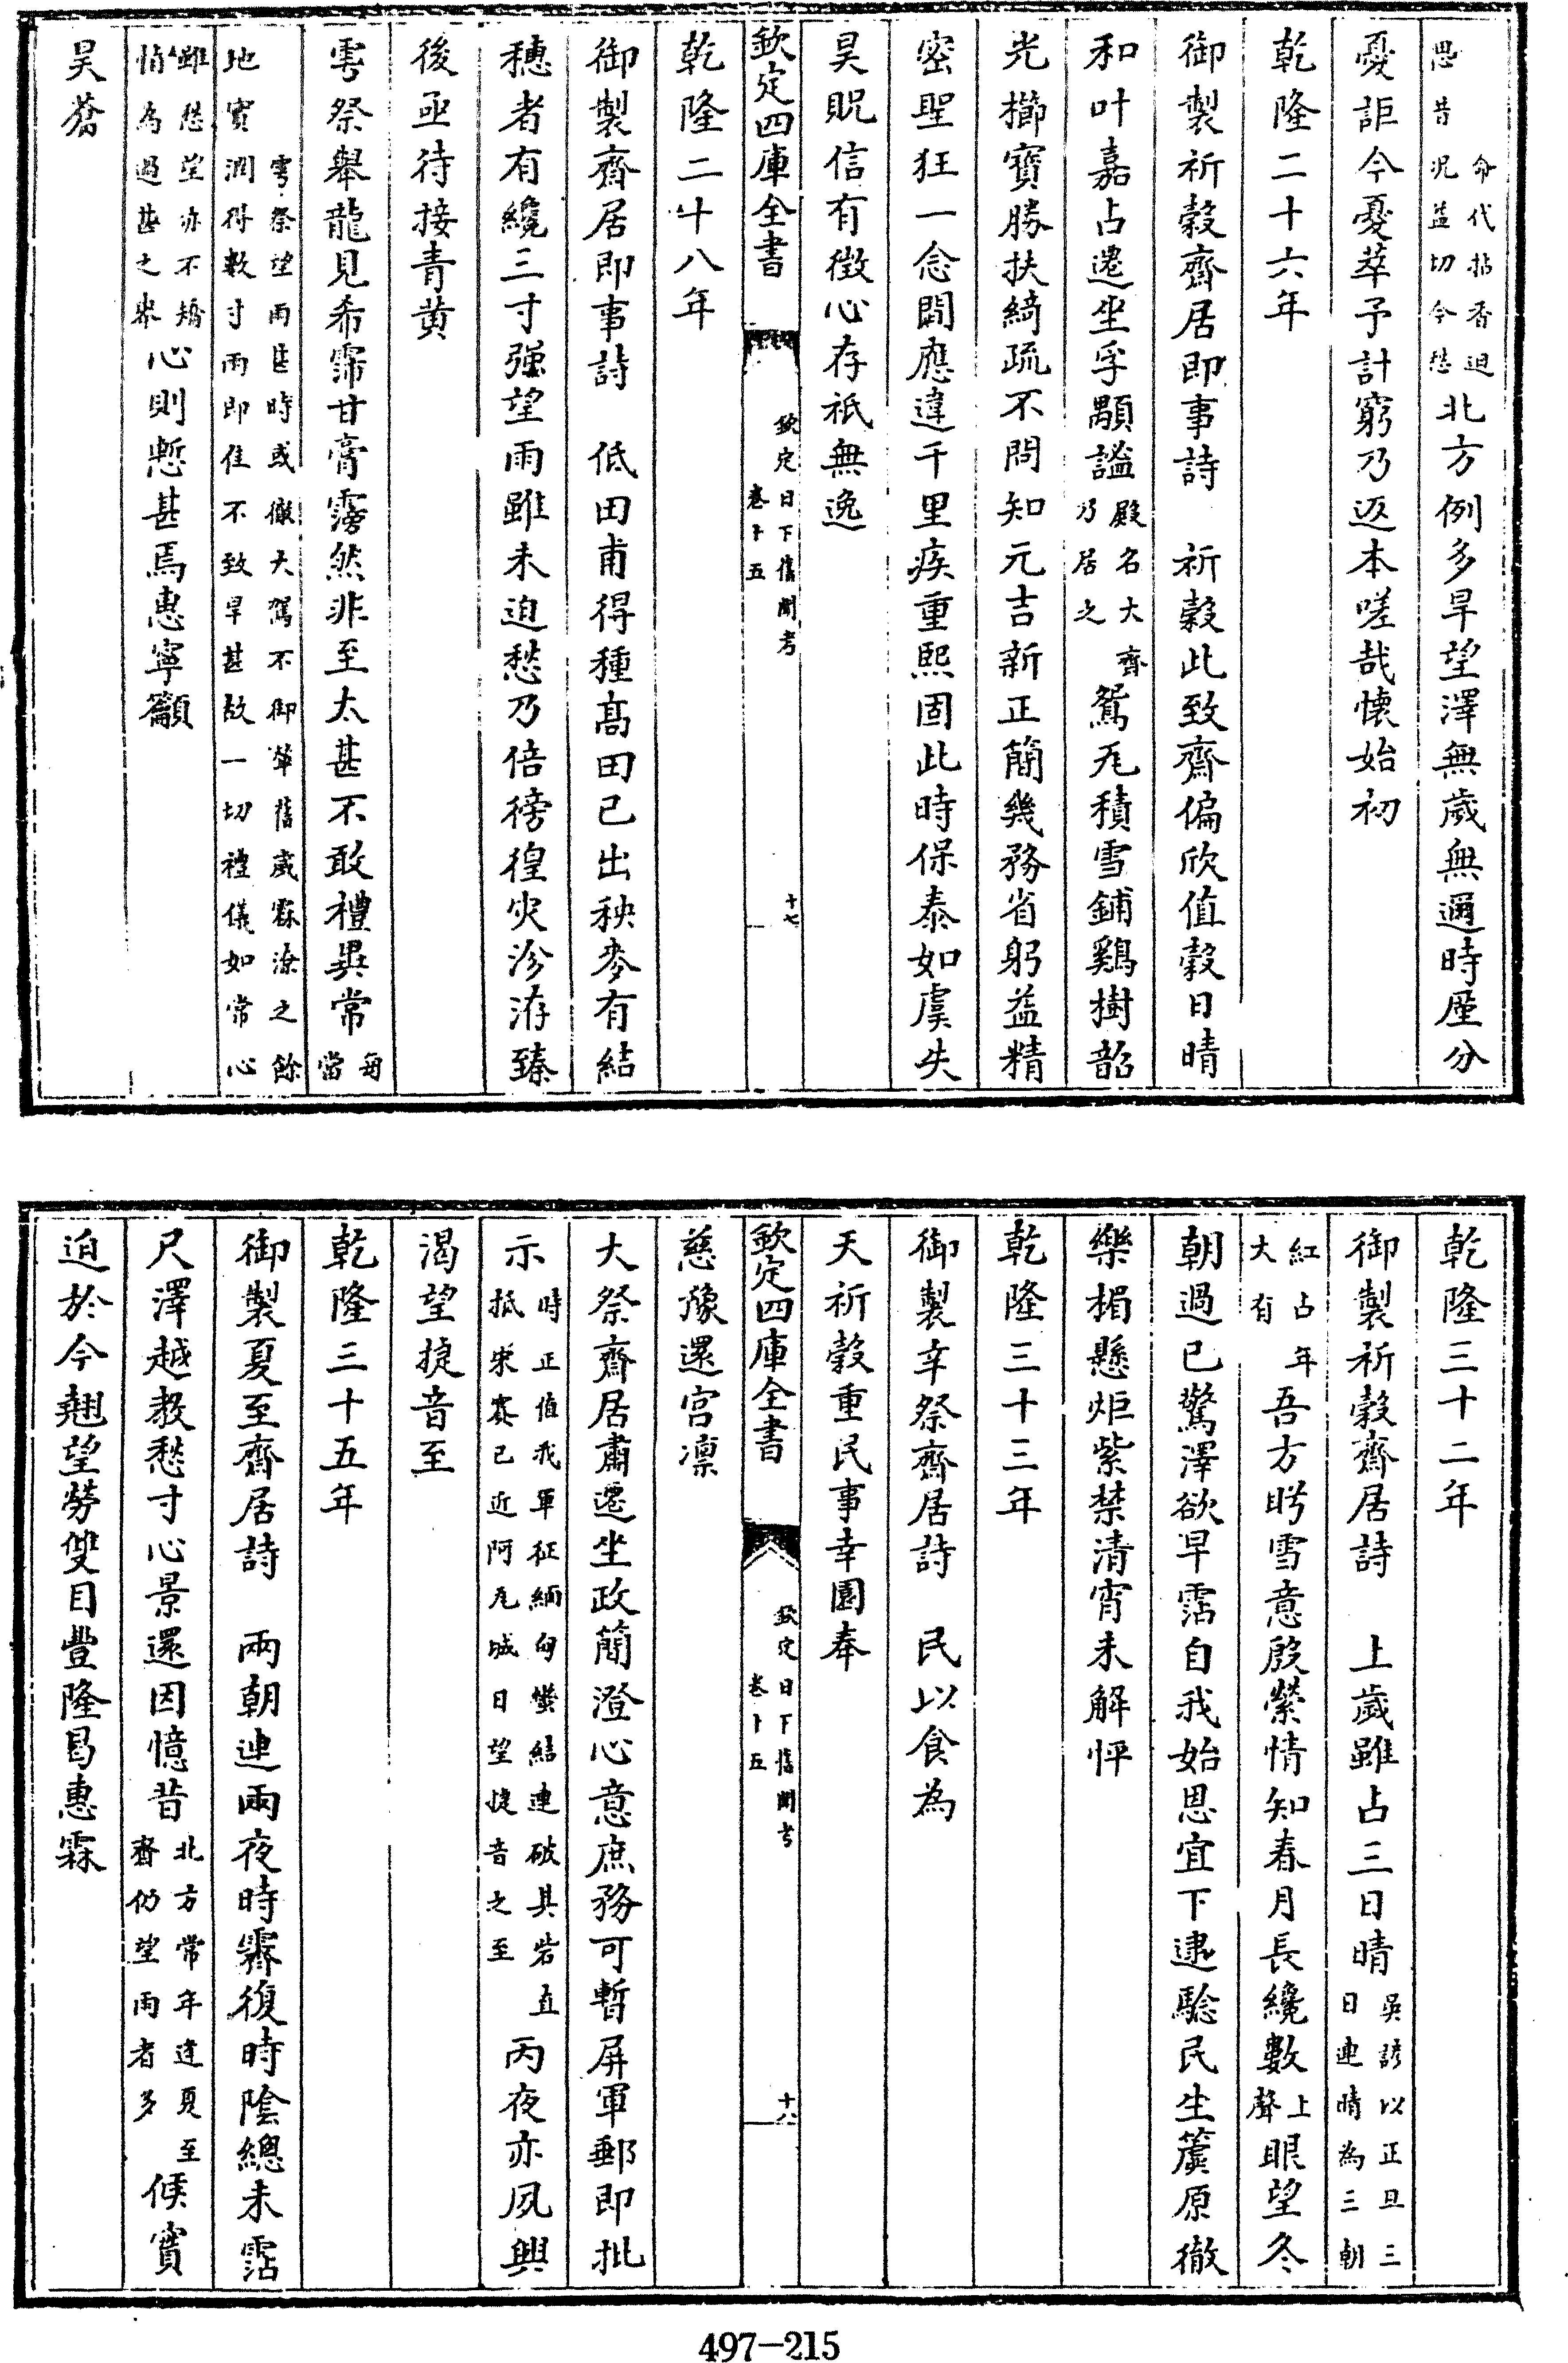 命代拈香迴思昔況益切今愁北方例多旱望澤無歲無邇時歷分
憂詎今憂萃予計窮乃返本嗟哉懷始初
乾隆二十六年
御製祈穀齋居即事詩　祈穀此致齋偏欣值穀日晴
和叶嘉占遷坐孚顒謐殿名大齋乃居之鴛瓦積雪鋪鷄樹韶
光櫛寳勝扶綺疏不問知元吉新正簡幾務省躬益精
密聖狂一念闢應違千里疾重熙固此時保泰如虞失
昊貺信有徴心存祇無逸
欽定四庫全書
欽定日下舊聞考
卷十五
十七
乾隆二十八年
御製齋居即事詩　低田甫得種髙田已出秧麥有結
穗者有纔三寸强望雨雖未迫愁乃倍徬徨灾沴洊臻
後亟待接青黄
雩祭舉龍見希霈甘膏霶然非至太甚不敢禮異常每當
雩祭望雨甚時或徹大駕不御輦舊歲霖潦之餘地實潤得數寸雨即佳不致旱甚故一切禮儀如常心
雖愁望亦不矯情為過甚之舉心則慙甚焉惠寧籲
昊蒼
乾隆三十二年
御製祈穀齋居詩　上歲雖占三日晴吳諺以正旦三日連晴為三朝
紅占年大有吾方盻雪意殷縈情知春月長纔數上聲眼望冬
朝過已驚澤欲早霑自我始恩宜下逮騐民生籚原徹
樂楣懸炬紫禁清宵未解怦
乾隆三十三年
御製辛祭齋居詩　民以食為
天祈穀重民事幸園奉
欽定四庫全書
欽定日下舊聞考
卷十五
十八
慈豫還宫凛
大祭齋居肅遷坐政簡澄心意庶務可暫屏軍郵即批
示時正值我軍征緬甸蠻結連破其砦直抵宋賽已近阿瓦城日望捷音之至丙夜亦夙興
渴望捷音至
乾隆三十五年
御製夏至齋居詩　兩朝連兩夜時霽復時陰總未霑
尺澤越教愁寸心景還因憶昔北方常年逹夏至齋仍望雨者多候實
迫於今翹望勞雙目豐隆曷惠霖
497-215